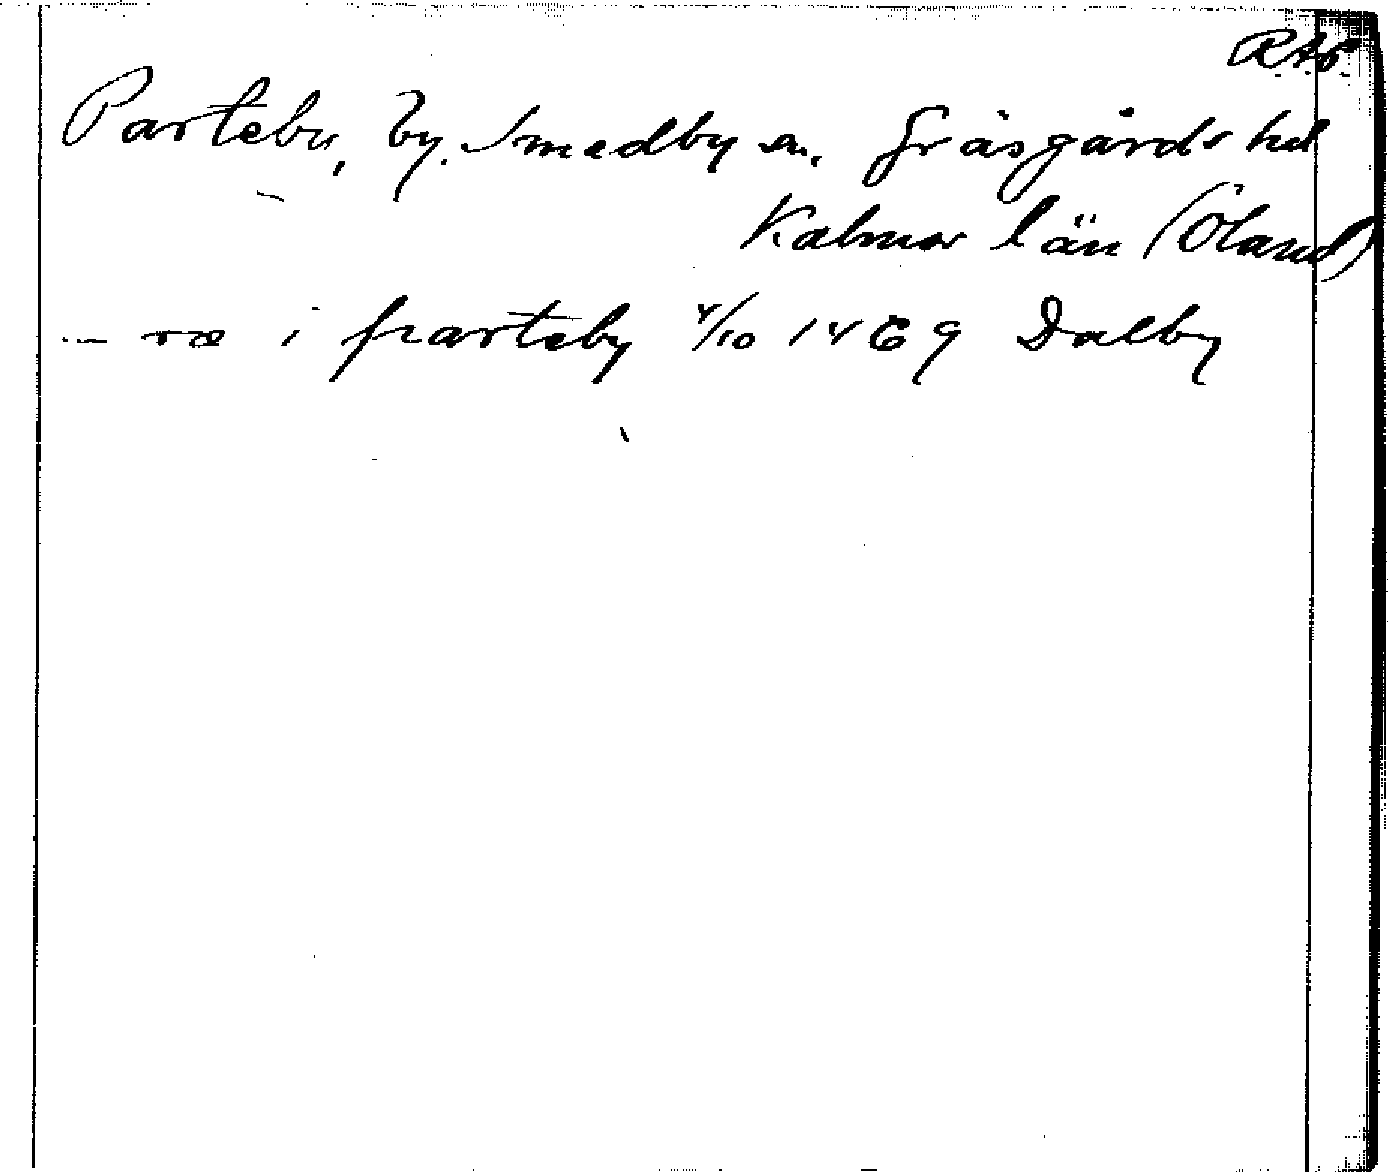 RAp
Parteby, by. Smedby sn. Gräsgårds hd
Kalmar län (Öland)
... ræ i parteby 4/10 1469 Dalby